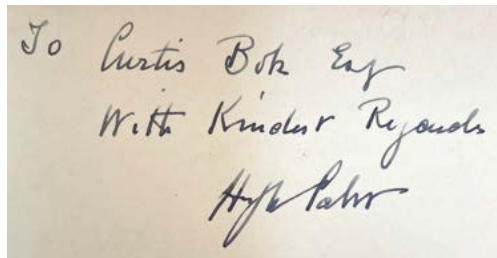 To Curtis Bok Esq
With Kindest Regards
Hugh